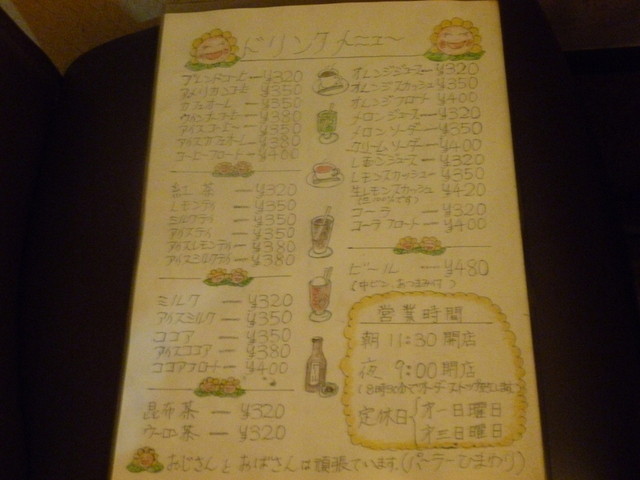 ドリンクメニュー
ブレンドコーヒー ¥320
アメリカンコーヒー ¥350
カフェオーレ ー ¥350
ウィンナーコーヒー ¥380
アイスコーヒー ー ¥350
アイスカフェオーレ ¥380
コーヒーフロート ー ¥400
紅茶 ー ¥320
レモンティ ー ¥350
ミルクティ ー ¥350
アイスティ ー ¥350
アイスレモンティ ー ¥380
アイスミルクティ ー ¥380
ミルク ー ¥320
アイスミルク ー ¥350
ココア ー ¥350
アイスココア ー ¥380
ココアフロート ー ¥400
昆布茶 ー ¥320
ウーロン茶 ー ¥320
オレンジジュース ー ¥320
オレンジスカッシュ ¥350
オレンジフロート ¥400
メロンジュース ー ¥320
メロンソーダー ー ¥350
クリームソーダー ー ¥400
レモンジュース ー ¥320
レモンスカッシュ ー ¥350
生レモンスカッシュ ¥420
コーラ ー ¥320
コーラフロート ー ¥400
ビール ー ¥480
(中ビン、おつまみ付)
営業時間
朝 11:30 開店
夜 9:00 閉店
(8時30分でオーダーストップ
定休日 オ一日曜日
オ三日曜日
おじさんとおばさんは頑張っています。(パーラーひまわり)